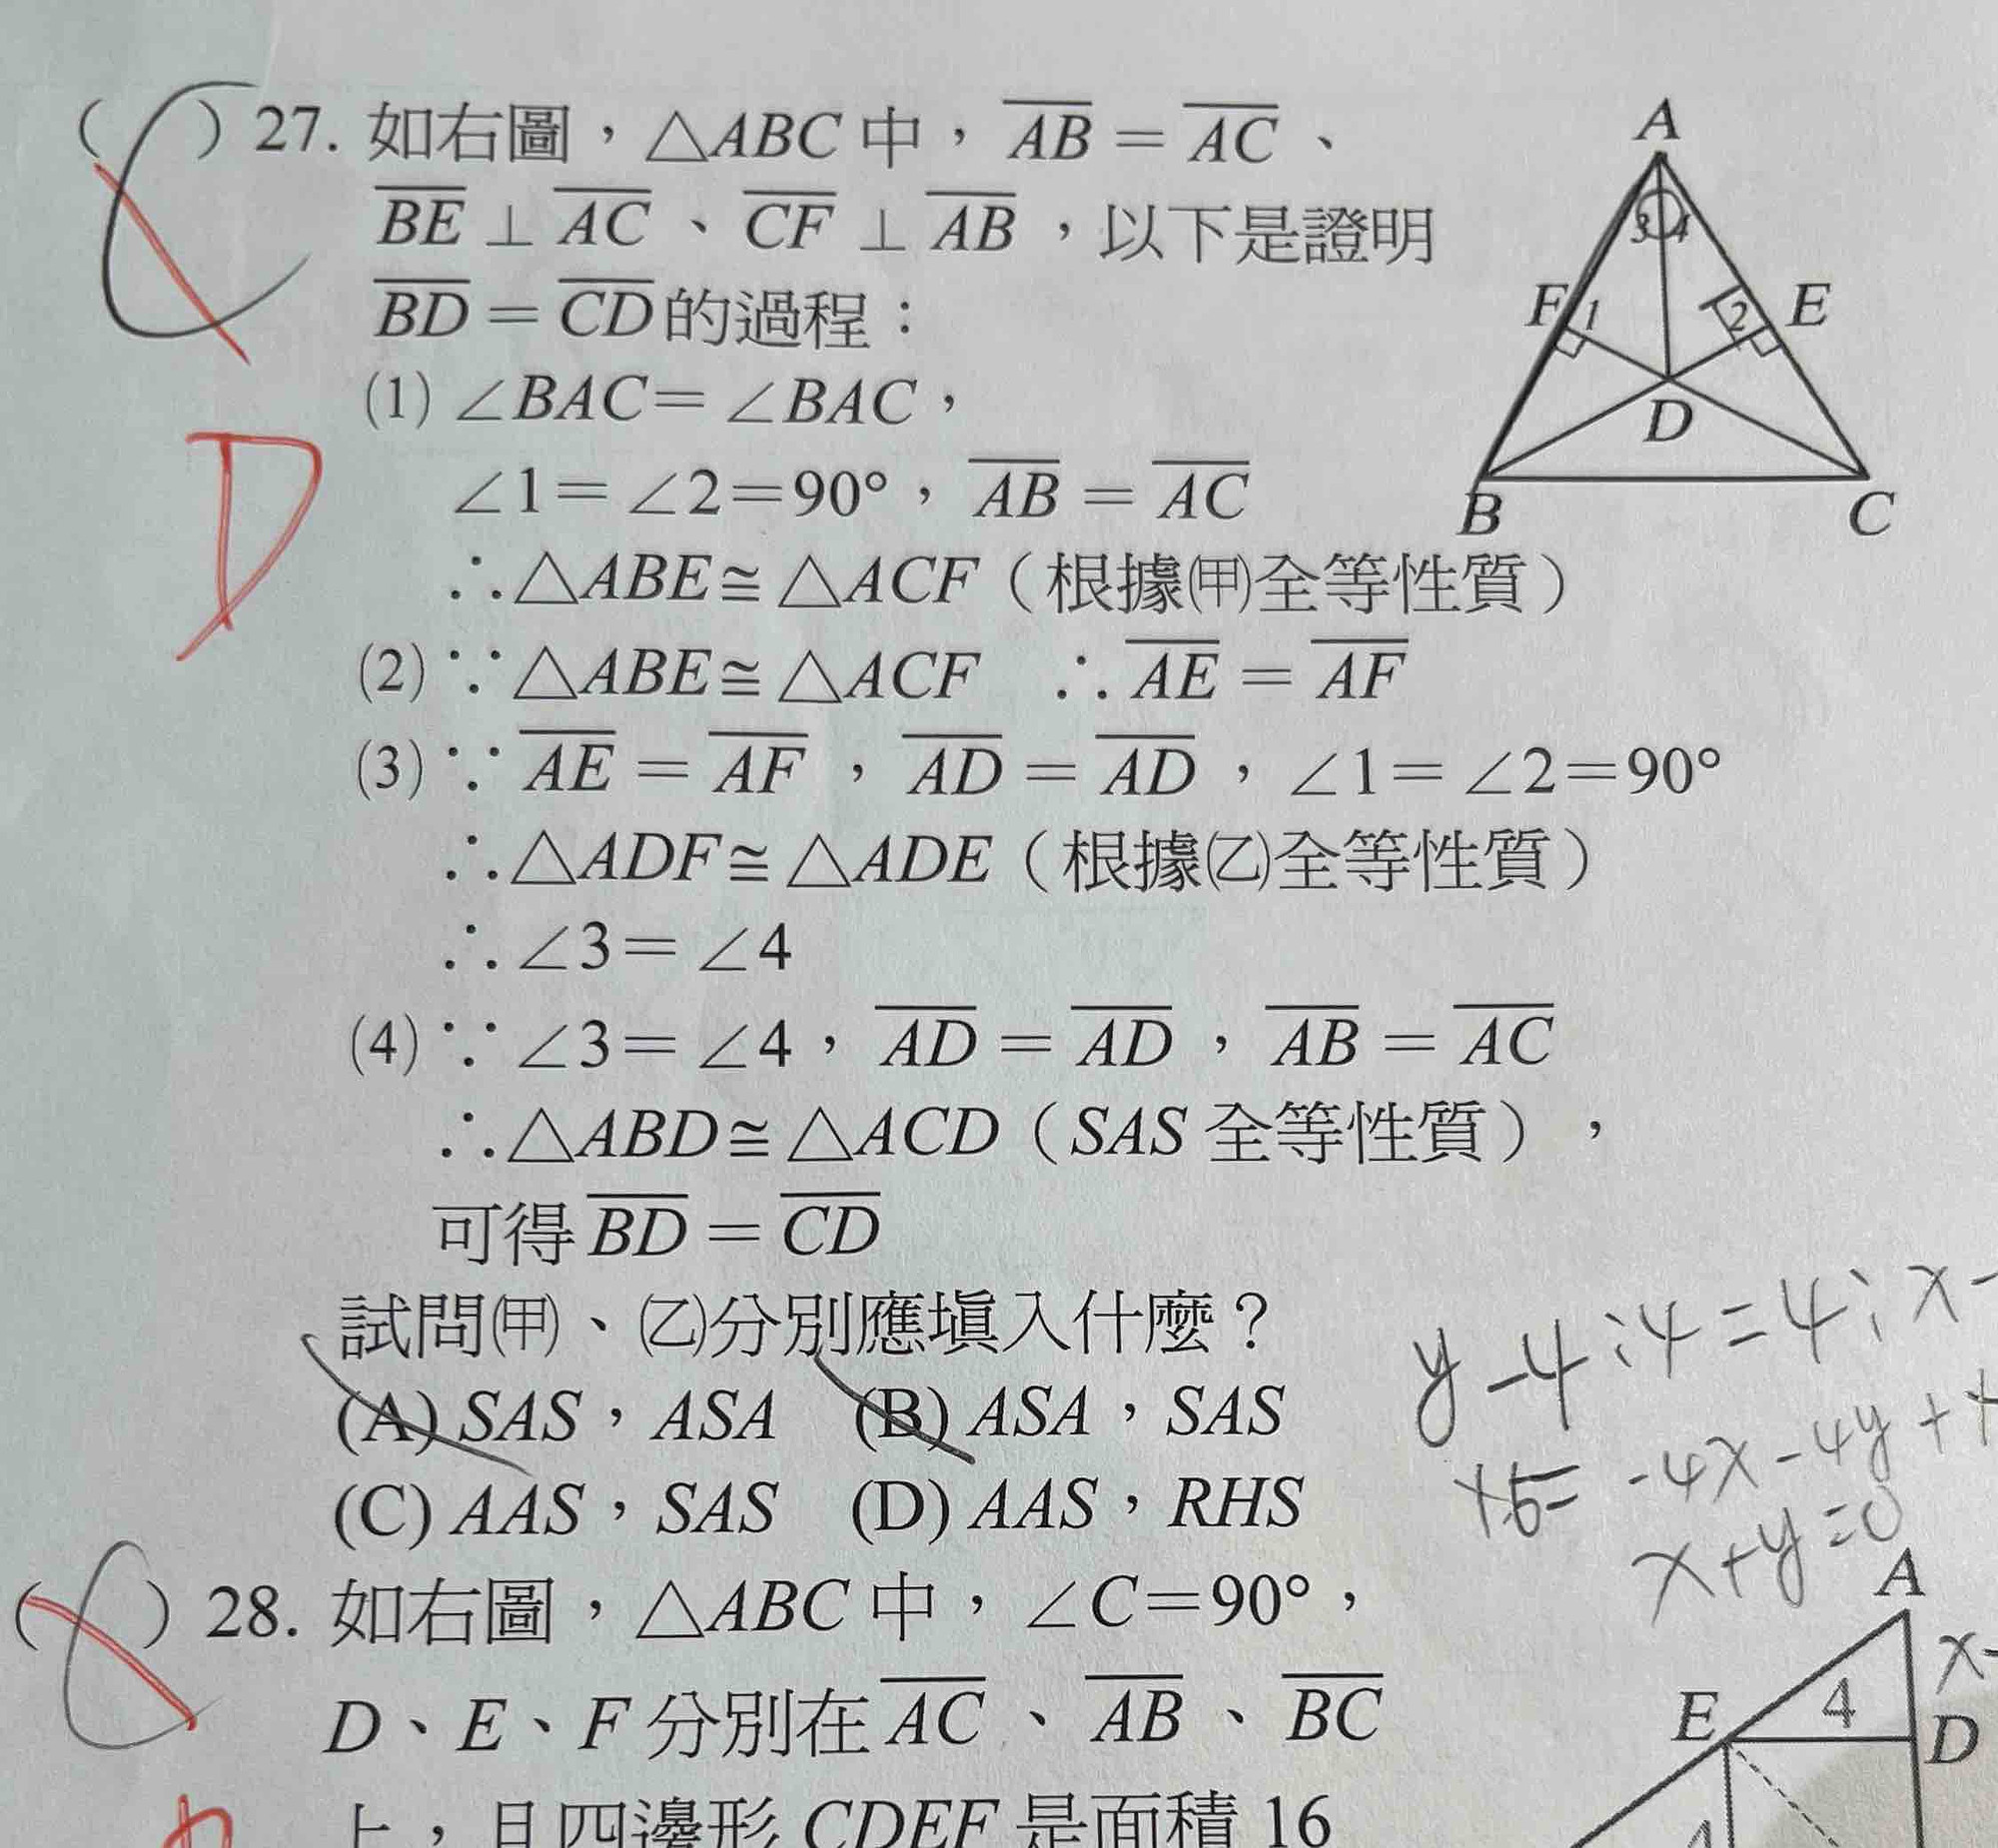 ( C ) 27. 如右圖，△ABC 中，AB = AC、
BE ⊥ AC、CF ⊥ AB，以下是證明
BD = CD 的過程：
(1) ∠BAC = ∠BAC，
∠1 = ∠2 = 90°，AB = AC
∴△ABE ≅ △ACF（根據㈙全等性質）
(2) ∵△ABE ≅ △ACF ∴AE = AF
(3) ∵AE = AF，AD = AD，∠1 = ∠2 = 90°
∴△ADF ≅ △ADE（根據㈚全等性質）
∴∠3 = ∠4
(4) ∵∠3 = ∠4，AD = AD，AB = AC
∴△ABD ≅ △ACD（SAS 全等性質），
可得 BD = CD
試問(甲)、(乙)分別應填入什麼？
(A) SAS，ASA (B) ASA，SAS
(C) AAS，SAS (D) AAS，RHS
D
A
3 4
F 1 2 E
D
B C
y-4:4=4:x-
-4x-4y+
x+y=0
( C ) 28. 如右圖，△ABC 中，∠C = 90°，
D、E、F 分別在 AC、AB、BC
上，且四邊形 CDEF 是面積 16
A
x-
E 4 D
4